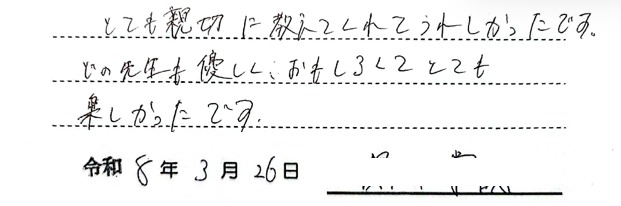 とても親切に教えてくれてうれしかったです。
どの先生も優しく、おもしろくてとても
楽しかったです。
令和8年3月26日